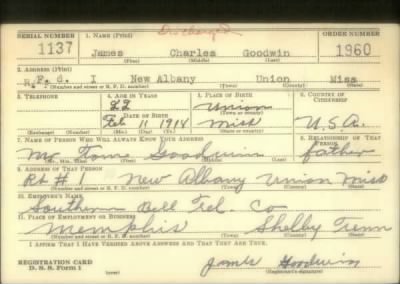 Discharged
SERIAL NUMBER 1. NAME (Print) ORDER NUMBER
1137 James Charles Goodwin 1960
(First) (Middle) (Last)
2. ADDRESS (Print)
R. F. d. 1 New Albany Union Miss
(Number and street or R. F. D. number) (Town) (County) (State)
3. TELEPHONE 4. AGE IN YEARS 5. PLACE OF BIRTH 6. COUNTRY OF CITIZENSHIP
Union
(Town or county)
DATE OF BIRTH
Feb 11 1914 Miss U.S.A.
(Exchange) (Number) (Mo.) (Day) (Yr.) (State or country)
7. NAME OF PERSON WHO WILL ALWAYS KNOW YOUR ADDRESS 8. RELATIONSHIP OF THAT PERSON
Mr. Tom Goodwin father
(Mr., Mrs., Miss) (First) (Middle) (Last)
9. ADDRESS OF THAT PERSON
Rt # 1 New Albany Union Miss
(Number and street or R. F. D. number) (Town) (County) (State)
10. EMPLOYER'S NAME
Southern Bell Tel. Co
11. PLACE OF EMPLOYMENT OR BUSINESS
Memphis Shelby Tenn
(Number and street or R. F. D. number) (Town) (County) (State)
I AFFIRM THAT I HAVE VERIFIED ABOVE ANSWERS AND THAT THEY ARE TRUE.
REGISTRATION CARD
D. S. S. Form 1 (over) James Goodwin
(Registrant's signature)